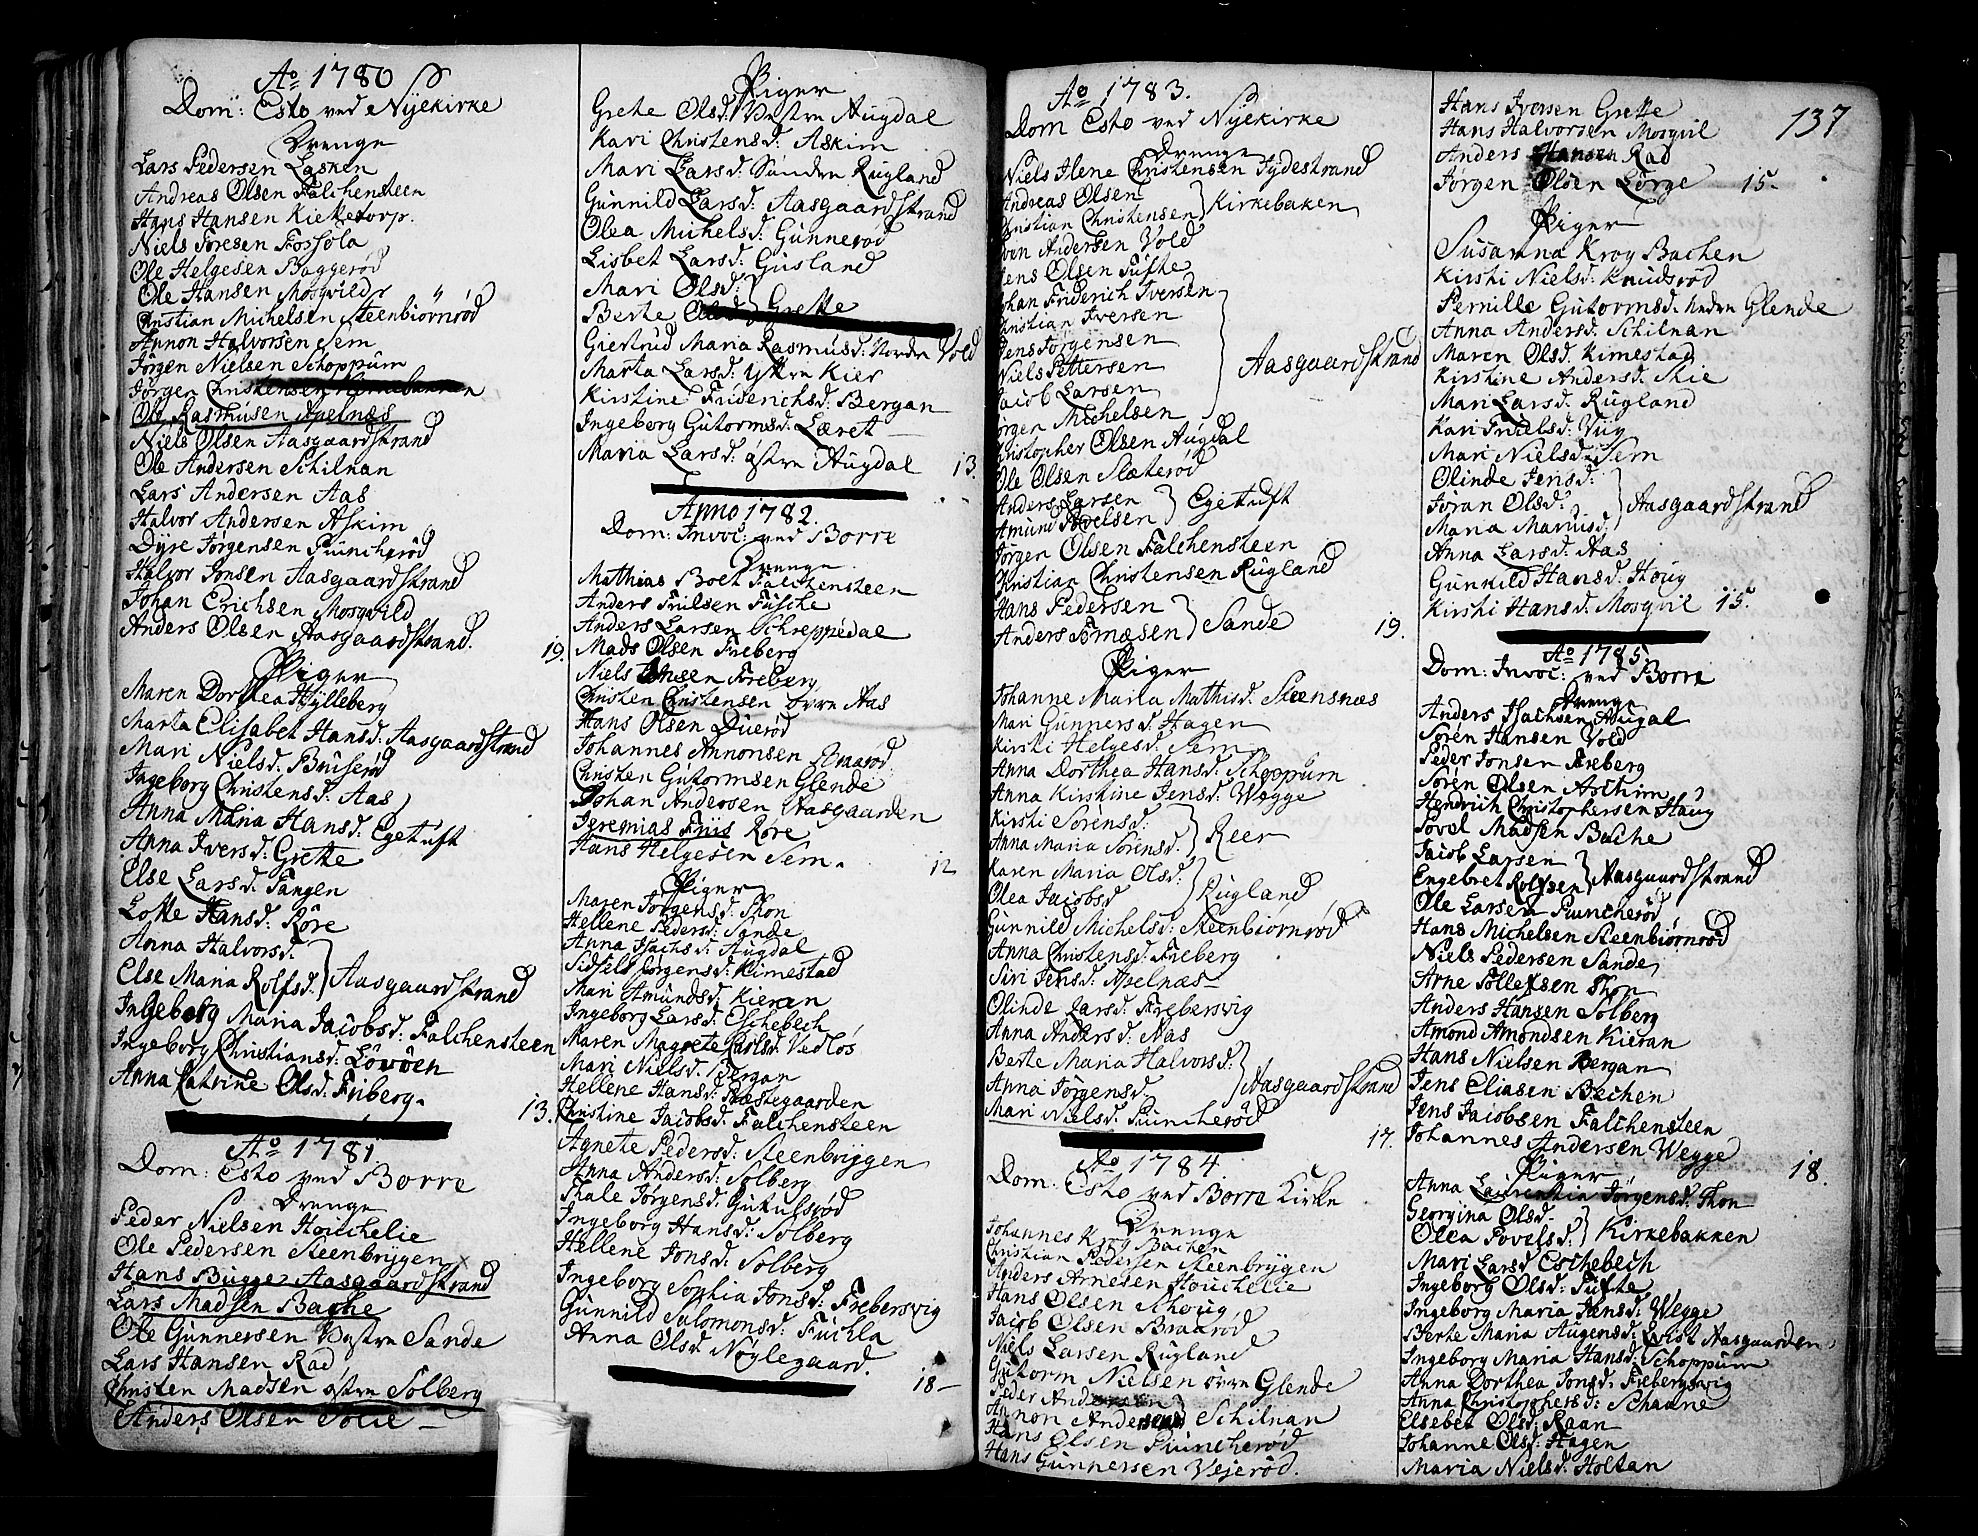 Ao 1780
Dom: Esto ved Nijekirke
Drenge
Lars Pedersen Lasken
Andreas Olsen Falchensteen
Hans Hansen Kirketorp.
Niels Foresen Fossola
Ole Helgesen Baggerød
Ole Hansen Mosqvild
Christian Michelsen Steenbiørnrød
Annon Halvorsen Sem
Jørgen Nielsen Schoppum
Jørgen Christensen
Ole Rasmusen Apelnæs
Niels Olsen Aasgaardstrand
Ole Andersen Schilnan
Lars Andersen Aas
Halvor Andersen Askim
Dyre Jørgensen Puncherød
Halvor Jonsen Aasgaardstrand
Johan Erichsen Mosqvild
Anders Olsen Aasgaardstrand. 19.
Piger
Maren Dorthea Hylleberg
Marta Elisabet Hansd: Aasgaardstrand
Mari Nielsd: Bruserød
Ingeborg Christensd: Aas
Anna Maria Hansd: Egetuft
Anna Iversd: Grette
Else Larsd: Tangen
Lotte Hansd: Røre
Anna Halvorsd:
Else Maria Rolfsd: } Aasgaardstrand
Ingeborg Maria Jacobsd: Falchensteen
Ingeborg Christiansd: Løvøen
Anna Catrine Olsd: Friberg. 13.
Ao 1781.
Dom: Esto ved Borre
Drenge
Peder Nielsen Houchelie
Ole Pedersen Steenbrygen
Hans Bugge Aasgaardstrand
Lars Madsen Bache
Ole Gunnersen Vestre Sande
Lars Hansen Rad
Christen Madsen østre Solberg
Anders Olsen Solie
Piger
Grete Olsd: Vestre Augdal
Kari Christensd: Askim
Mari Larsd: Søndre Rugland
Gunnild Larsd: Aasgaardstrand
Olea Michelsd: Gunnerød
Lisbet Larsd: Gusland
Mari Olsd:
Berte Olsd } Grette
Giertrud Maria Rasmusd: Nordre Vold
Marta Larsd: ytre Kier
Kirstine Friderichsd: Bergan
Ingeborg Gutormsd: Læret
Maria Larsd: østre Augdal 13.
Anno 1782.
Dom: Invoc: ved Borre
Drenge
Mathias Boet Falchensteen
Anders Friilsen Fusche
Anders Larsen Schreppedal
Mads Olsen Freberg
Niels Hansen Freberg
Christen Christensen øvre Aas
Hans Olsen Duerød
Johannes Annonsen
Christen Gutormsen Glende
Johan Andersen Aasgaarden
Jeremias Friis Røre
Hans Helgesen Sem. 12
Piger
Maren Jørgensd: Thon
Hellene Pedersd: Sande
Anna Isachsd: Augdal
Sidsels Jørgensd: Kimestad
Mari Amundsd: Kieran
Ingeborg Larsd: Eschebech
Maren Magrete Carlsd: Vedløs
Mari Nielsd: Bergan
Hellene Hansd: Præstegaarden
Christine Jacobsd: Falchensteen
Agnete Pedersd: Steenbrygen
Anna Andersd: Solberg
Thale Jørgensd: Gutulfsrød
Ingeborg Hansd: Solberg
Hellene Jonsd: Solberg
Ingeborg Sophia Jonsd: Frebersvig
Gunnild Salomonsd: Fuchla
Anna Olsd Nøglegaard. 18
Ao 1783.
Dom Esto ved Nyekirke
Drenge
Niels Ilene Christensen Tydestrand
Andreas Olsen
Christian Christensen } Kirkebaken
Even Andersen Vold
Jens Olsen Tufte
Johan Friderich Iversen
Christian Iversen
Jens Jørgensen
Niels Pettersen } Aasgaardstrand
Jacob Larsen
Jørgen Michelsen
Christopher Olsen Augdal
Ole Olsen Sleterød
Anders Larsen
Amund Povelsen } Egetuft
Jørgen Olsen Falchensteen
Christian Christensen Rugland
Hans Pedersen
Anders Tomæsen } Sande 19.
Piger
Johanne Maria Mathisd: Steensnæs
Mari Gunnersd: Hagen
Kirsti Helgesd: Sem
Anna Dorthea Hansd: Schoppum
Anna Kirstine Jensd: Wegge
Kirsti Sørensd:
Anna Maria Sørensd: } Reer
Karen Maria Olsd:
Olea Jacobsd } Rugland
Gunnild Michelsd: Steenbiørnrød
Anna Christensd: Freberg
Siri Jensd: Apelnæs
Olinde Larsd: Frebersvig
Anna Andersd: Aas
Berte Maria Halvorsd:
Anna Jørgensd: } Aasgaardstrand
Mari Nielsd: Puncherød 17.
Ao 1784.
Dom: Esto ved Borre Kirke
Drenge
Johannes Krog Bachen
Christian Pedersen Steenbrygen
Anders Arnesen Houchelie
Hans Olsen Skoug
Jacob Olsen Braarød
Niels Larsen Rugland
Gutorm Nielsen øvre Glende
Peder Andersen
Annon Andersen } Schilnan
Hans Olsen Puncherød
Hans Gunnersen Vejerød.
137
Hans Iversen Grette
Hans Halvorsen Mosqvil
Anders Hansen Rad
Jørgen Olsen Lørge 15.
Piger
Susanna Krog Bachen
Kirsti Nielsd: Knudsrød
Pernille Gutormsd: nedre Glende
Anna Andersd: Schilnan
Maren Olsd: Kimestad
Kirstine Andersd: Skie
Mari Larsd: Rugland
Kari Frielsd: Vug
Mari Nielsd: Sem
Olinde Jensd:
Jøran Olsd: } Aasgaardstrand
Maria Mariusd:
Anna Larsd: Aas
Gunhild Hansd: Houg
Kirsti Hansd: Mosqvil 15.
Ao 1785.
Dom: Invoc: ved Borre
Drenge
Anders Isachsen Augal
Søren Hansen Vold
Peder Jonsen Freberg
Søren Olsen Aschim
Hendrich Christophersen Haug
Povel Madsen Bache
Jacob Larsen
Engebret Rolfsen } Aasgaardstrand
Ole Larsen Puncherød
Hans Michelsen Steenbiørnrød
Niels Pedersen Sande
Arne Tollefsen Thon
Anders Hansen Solberg
Amond Amondsen Kieran
Hans Nielsen Bergan
Jens Eliasen Bechen
Jens Jacobsen Falchensteen
Johannes Andersen Wegge 18.
Piger
Anna Laurentia Jørgensd: Thon
Georgina Olsd
Olea Povelsd: } Kirkebakken
Mari Larsd Eschebech
Ingeborg Olsd: Tufte
Ingeborg Maria Jensd: Wegge
Berte Maria Augensd: Qvist Aasgaarden
Ingeborg Maria Hansd: Schoppum
Anna Dorthea Jonsd: Frebergsvig
Anna Christophersd: Schaane
Elsebet Olsd: Raan
Johanne Olsd: Hagen
Maria Nielsd: Holtan